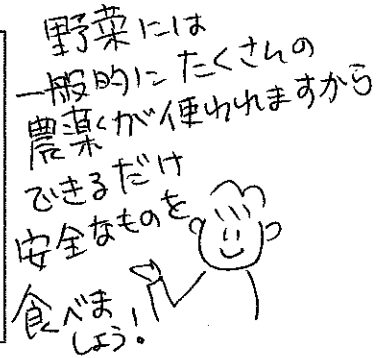 野菜には
一般的にたくさんの
農薬が使われますから
できるだけ
安全なものを
食べま
しょう!